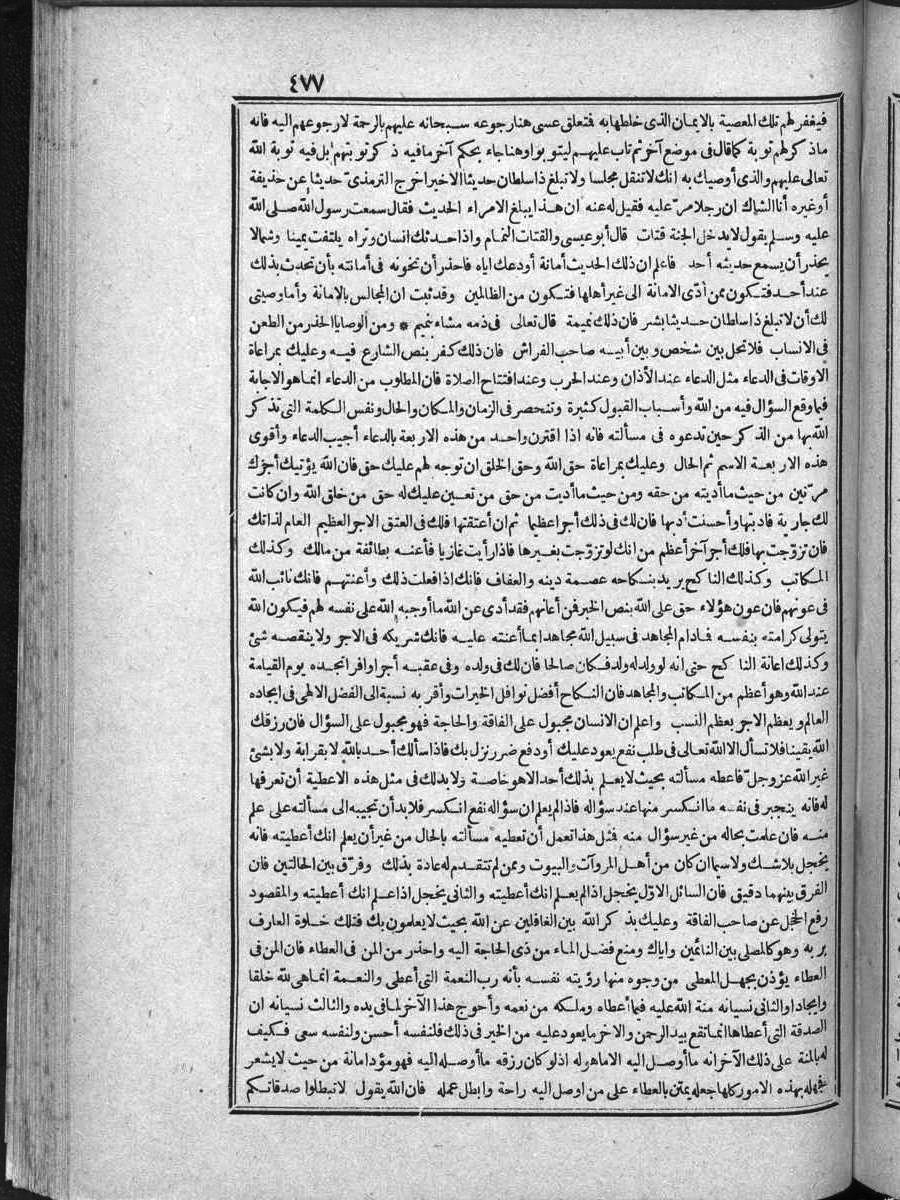 ٤٧٧
فيغفر لهم تلك المعصية بالايمان الذى خلطها به فتعلق عسى هنا رجوعه سبحانه عليهم بالرحمة لا رجوعهم اليه فانه
ماذكر لهم توبة كما قال فى موضع آخر ثم تاب عليهم ليتوبوا وهنا جاء بحكم آخر مافيه ذكر توبتهم بل فيه توبة الله
تعالى عليهم والذى أوصيك به انك لاتنقل مجلسا ولاتبلغ ذا سلطان حديثا الاخيرا خرج الترمذىّ حديثا عن حذيفة
أوغيره أنا الشاك ان رجلا مرّ عليه فقيل له عنه ان هذا يبلغ الامراء الحديث فقال سمعت رسول الله صلى الله
عليه وسلم يقول لايدخل الجنة قتات قال أبوعيسى والقتات النمام واذا حدثك انسان وتراه يلتفت يمينا وشمالا
يحذر أن يسمع حديثه أحد فاعلم ان ذلك الحديث أمانة أودعك اياه فاحذر أن تخونه فى أمانته بأن تحدث بذلك
عند أحد فتكون ممن أدّى الامانة الى غير أهلها فتكون من الظالمين وقد ثبت ان المجالس بالامانة وأما وصيتى
لك أن لاتبلغ ذا سلطان حديثا بشر فان ذلك نميمة قال تعالى فى ذمه مشاء بنميم * ومن الوصايا الحذر من الطعن
فى الانساب فلا تحل بين شخص وبين أبيه صاحب الفراش فان ذلك كفر بنص الشارع فيه وعليك بمراعاة
الاوقات فى الدعاء مثل الدعاء عند الأذان وعند الحرب وعند افتتاح الصلاة فان المطلوب من الدعاء انماهو الاجابة
فيما وقع السؤال فيه من الله وأسباب القبول كثيرة وتنحصر فى الزمان والمكان والحال ونفس الكلمة التى تذكر
الله بها من الذكر حين تدعوه فى مسألته فانه اذا اقترن واحد من هذه الاربعة بالدعاء أجيب الدعاء وأقوى
هذه الاربعة الاسم ثم الحال وعليك بمراعاة حق الله وحق الخلق ان توجه لهم عليك حق فان الله يؤتيك أجرك
مرّتين من حيث ما أديته من حقه ومن حيث ما أديت من حق من تعين عليك له حق من خلق الله وان كانت
لك جارية فادبتها وأحسنت أدبها فان لك فى ذلك أجرا عظيما ثم ان أعتقتها فلك فى العتق الاجر العظيم العام لذاتك
فان تزوّجت بها فلك أجر آخر أعظم من انك لو تزوّجت بغيرها فاذا رأيت غازيا فأعنه بطائفة من مالك وكذلك
المكاتب وكذلك الناكح يريد بنكاحه عصمة دينه والعفاف فانك اذا فعلت ذلك وأعنتهم فانك نائب الله
فى عونهم فان عون هؤلاء حق على الله بنص الخبر فمن أعانهم فقد أدى عن الله ما أوجبه الله على نفسه لهم فيكون الله
يتولى كرامته بنفسه فمادام المجاهد فى سبيل الله مجاهدا بما أعنته عليه فانك شريكه فى الاجر ولاينقصه شئ
وكذلك اعانة الناكح حتى انه لو ولد له ولد فكان صالحا فان لك فى ولده وفى عقبه أجرا وافرا تجده يوم القيامة
عند الله وهو أعظم من المكاتب والمجاهد فان النكاح أفضل نوافل الخيرات وأقربه نسبة الى الفضل الالهى فى ايجاده
العالم ويعظم الاجر بعظم النسب واعلم ان الانسان مجبول على الفاقة والحاجة فهو مجبول على السؤال فان رزقك
الله يقينا فلا تسأل الا الله تعالى فى طلب نفع يعود عليك أو دفع ضرر نزل بك فاذا سألك أحد بالله لا بقرابة ولا بشئ
غير الله عز وجلّ فاعطه مسألته بحيث لايعلم بذلك أحد الاهو خاصة ولا بد لك فى مثل هذه الاعطية أن تعرفها
له فانه ينجبر فى نفسه ما انكسر منها عند سؤاله فاذا لم يعلم ان سؤاله نفع انكسر فلا بد أن تجيبه الى مسألته على علم
منه فان علمت بحاله من غير سؤال منه فمثل هذا تعمل أن تعطيه مسألته بالحال من غير أن يعلم انك أعطيته فانه
يخجل بلاشك ولاسيما ان كان من أهل المروآت والبيوت وممن لم تتقدم له عادة بذلك وفرّق بين الحالتين فان
الفرق بينهما دقيق فان السائل الاوّل يخجل اذا لم يعلم انك أعطيته والثانى يخجل اذا علم انك أعطيته والمقصود
رفع الخجل عن صاحب الفاقة وعليك بذكر الله بين الغافلين عن الله بحيث لايعلمون بك فتلك خلوة العارف
بربه وهو كالمصلى بين النائمين واياك ومنع فضل الماء من ذى الحاجة اليه واحذر من المن فى العطاء فان المن فى
العطاء يؤذن بجهل المعطى من وجوه منها رؤيته نفسه بأنه رب النعمة التى أعطى والنعمة انماهى لله خلقا
وايجادا والثانى نسيانه منة الله عليه فيما أعطاه وملكه من نعمه وأحوج هذا الآخر لما فى يده والثالث نسيانه ان
الصدقة التى أعطاها انما تقع بيد الرحمن والاخر مايعود عليه من الخير فى ذلك فلنفسه أحسن ولنفسه سعى فكيف
له بالمنة على ذلك الآخر انه ما أوصل اليه الا ماهو له اذ لو كان رزقه ما أوصله اليه فهو مؤد امانة من حيث لايشعر
فجهله بهذه الامور كلها جعله يمتن بالعطاء على من اوصل اليه راحة وابطل عمله فان الله يقول لاتبطلوا صدقاتكم